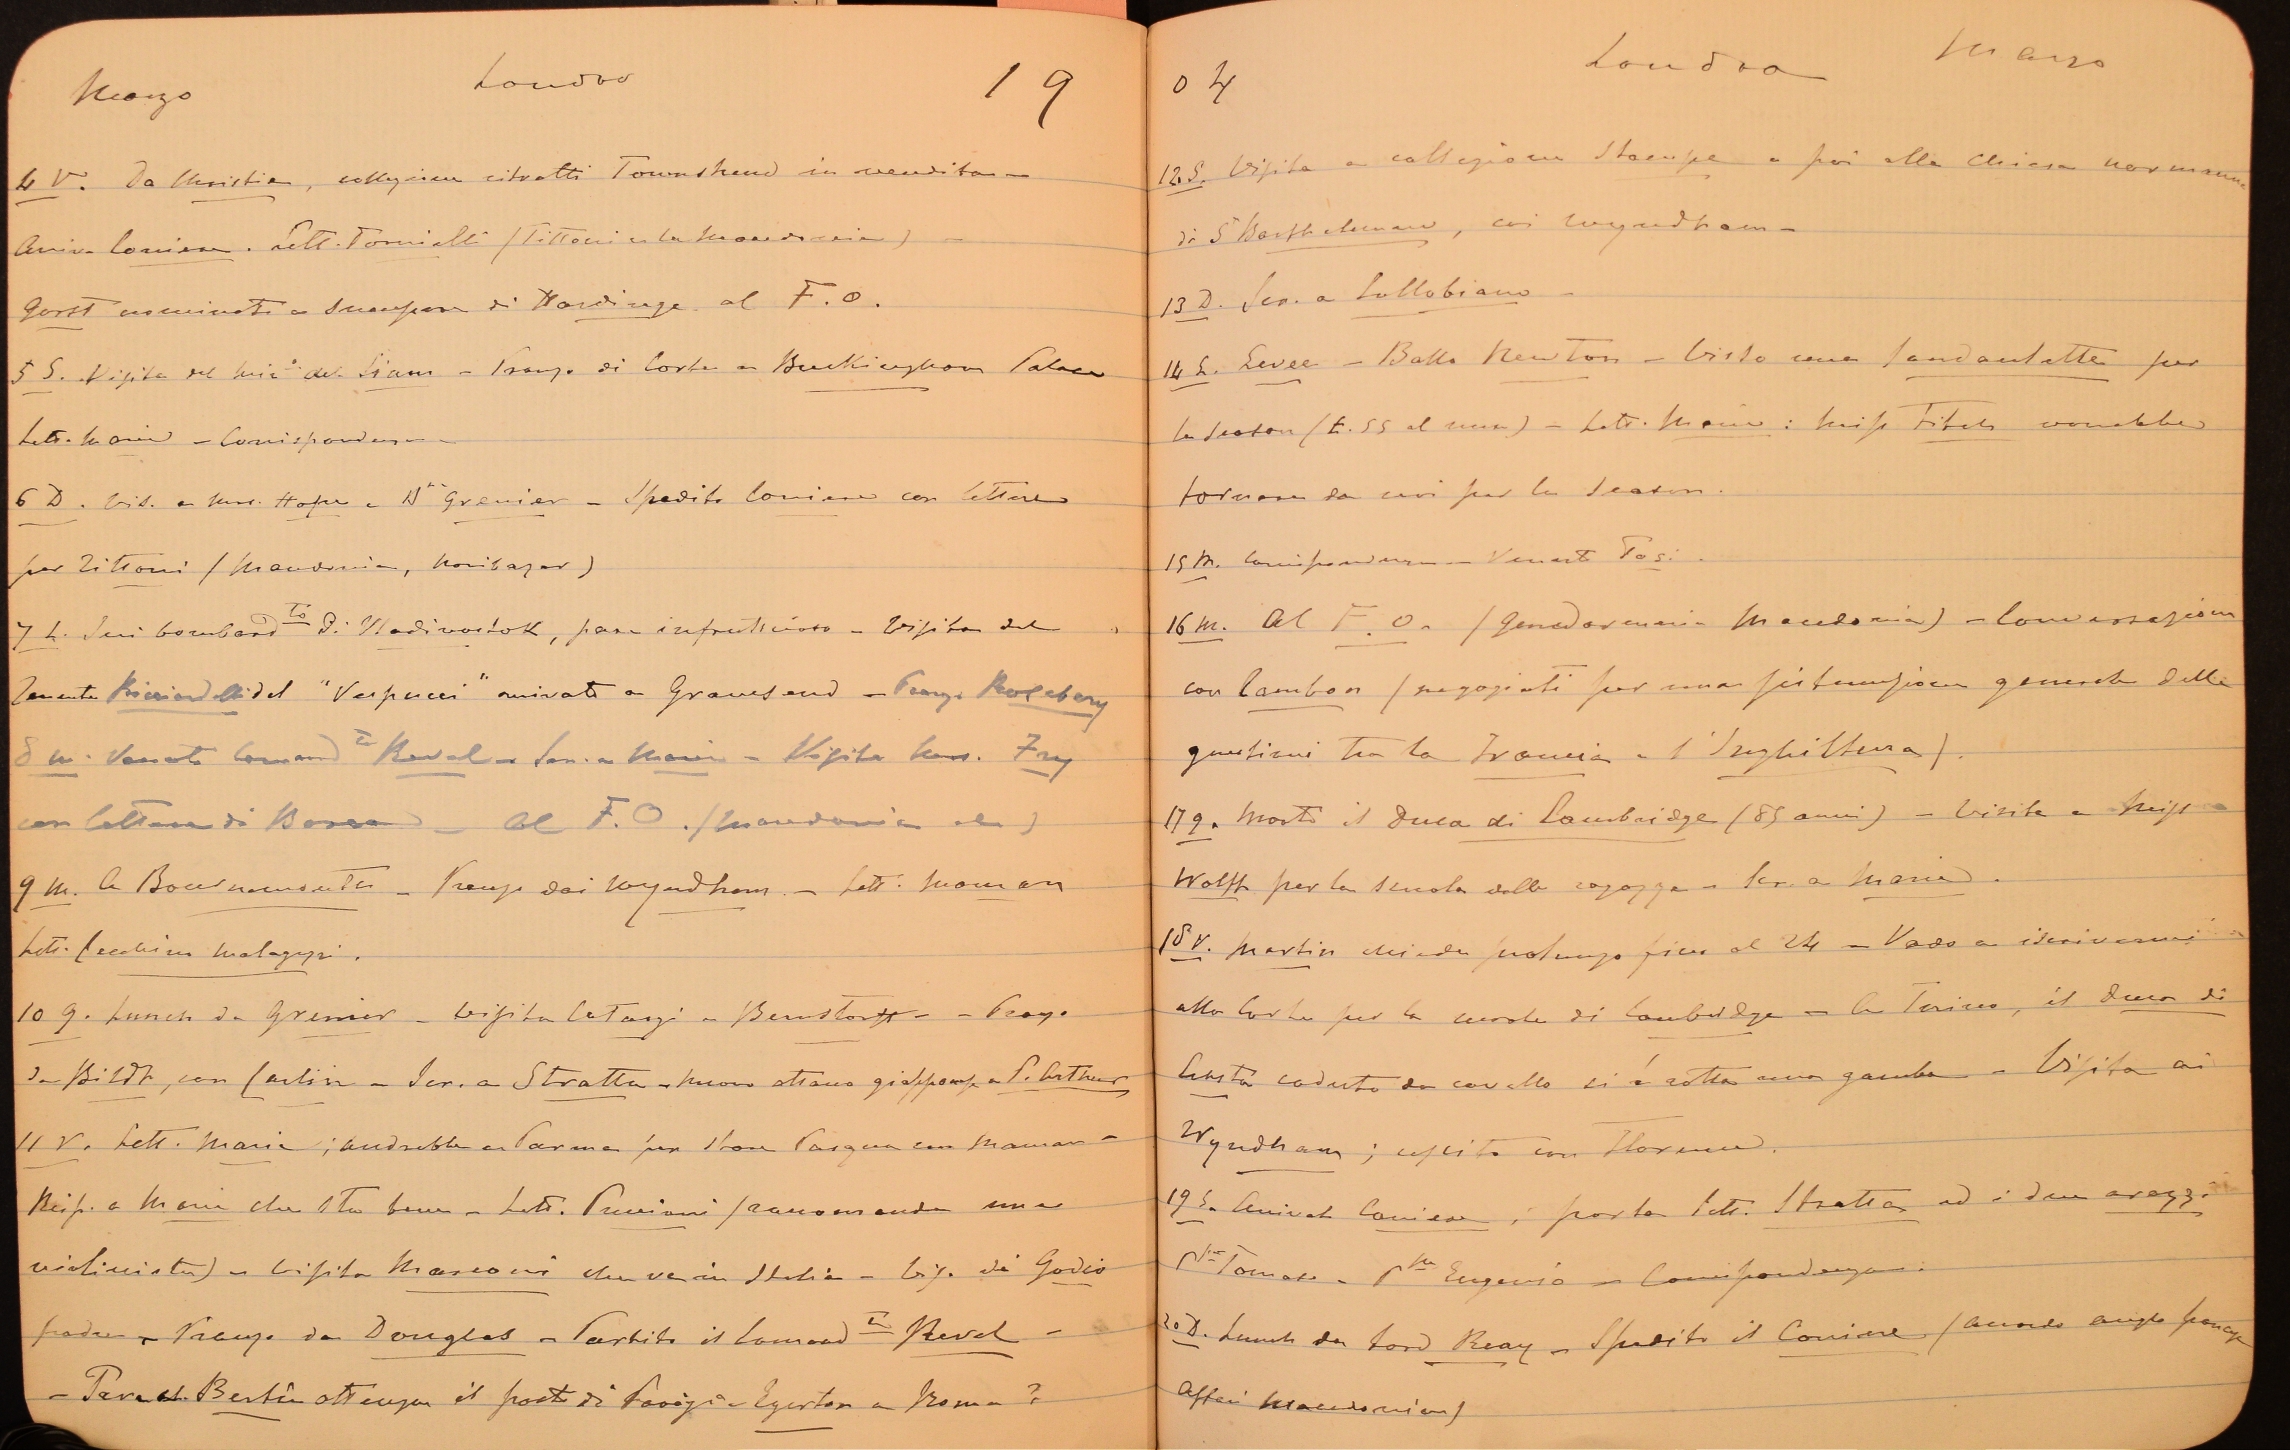 Marzo Londra 19
4 V. Da Christie, collezione ritratti Townshend in vendita -
Arriv. Corriere. Lett. Tornielli (Tittoni e la Macedonia) -
Gorst nominato a successore di Hardinge al F.O.
5 S. Visita del Min.° del Siam - Pranzo di Corte a Buckingham Palace
Lett. Maria - Corrispondenza -
6 D. Vis. a Mrs. Hope e Grenier - Spedito Corriere con lettere
per Tittoni (Macedonia, Novibazar)
7 L. Ieri bombard.to di Vladivostok, pare infruttuoso - Visita del
Tenente Ricciardelli del "Vespucci" arrivato a Gravesend - Pranzo Rosebery
8 M. Venuto Comand.te Revel - Scr. a Maria - Visita Mrs. Fry
con lettera di - Al F.O. (Macedonia ecc)
9 M. A Bournemouth - Pranzo dai Wyndham - Lett. Maman
Lett. Cecchino Malaguzzi.
10 G. Lunch da Grenier - Visita Catargi e Bernstorff - Pranzo
da Bildt, con Carlin - Scr. a Stratta - Nuovo attacco giapponese a P. Arthur
11 V. Lett. Maria; andrebbe a Parma per stare Pasqua con Maman -
Risp. a Maria che sta bene - Lett. Puccioni (raccomanda una
violinista) - Visita Marconi che va in Italia - Vis. di Godio
padre - Pranzo da Douglas - Partito il Comand.te Revel -
- Pare ch. Bertie ottenga il posto di Parigi e Egerton a Roma?
04 Londra Marzo
12 S. Visita a collezione Stampe e poi alla chiesa normanna
di St Bartholomew, coi Wyndham -
13 D. Scr. a Lollobiano -
14 L. Levee - Ballo Newton - Visto una landaulette per
la season (£. 55 al mese) - Lett. Maria: Miss Fitch vorrebbe
tornare da noi per la season.
15 M. Corrispondenza - Venuto Tosi.
16 M. Al F.O. (Gendarmeria Macedonia) - Conversazione
con Cambon (negoziati per una sistemazione generale delle
questioni tra la Francia e l'Inghilterra).
17 G. Morto il Duca di Cambridge (85 anni) - Visita a Miss
Wolff per la scuola delle ragazze - Scr. a Maria.
18 V. Martin chiede prolungo fino al 24 - Vado a iscrivermi
alla Corte per la morte di Cambridge - A Torino, il Duca di
Aosta caduto da cavallo si è rotta una gamba - Visita ai
Wyndham; uscito con Florence.
19 S. Arrivato Corriere; porta lett. Stratta ed i due arazzi
P.pe Tomaso e P.pe Eugenio - Corrispondenza.
20 D. Lunch da Lord Reay - Spedito il Corriere (accordo anglo francese
Affari Macedonia)